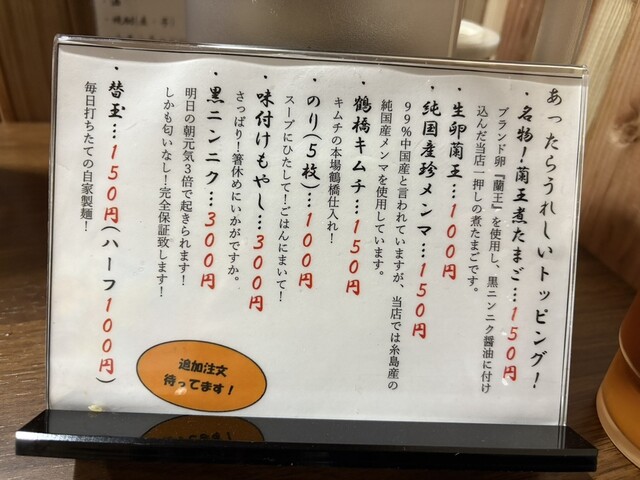 あったらうれしいトッピング！
・名物！蘭王煮たまご…150円
ブランド卵『蘭王』を使用し、黒ニンニク醤油に付け
込んだ当店一押しの煮たまごです。
・生卵蘭王…100円
・純国産珍メンマ…150円
99%中国産と言われていますが、当店では糸島産の
純国産メンマを使用しています。
・鶴橋キムチ…150円
キムチの本場鶴橋仕入れ！
・のり(5枚)…100円
スープにひたして！ごはんにまいて！
・味付けもやし…300円
さっぱり！箸休めにいかがですか。
・黒ニンニク…300円
明日の朝元気3倍で起きられます！
しかも匂いなし！完全保証致します！
・替玉…150円(ハーフ100円)
毎日打ちたての自家製麺！
追加注文
待ってます！